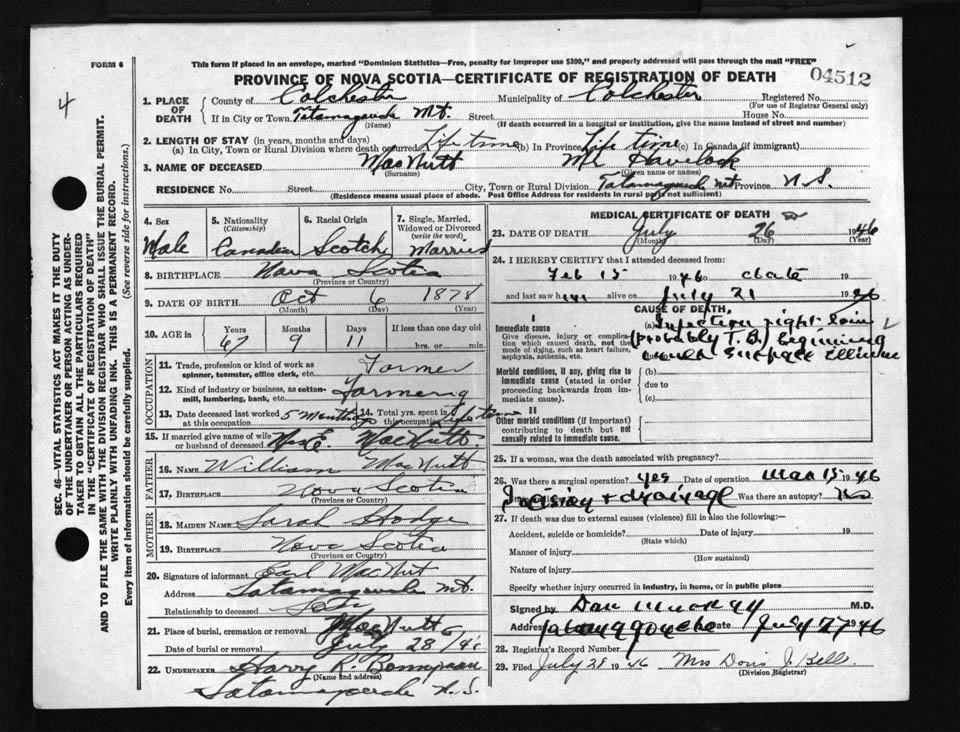 FORM 6
This form if placed in an envelope, marked "Dominion Statistics—Free, penalty for improper use $300," and properly addressed will pass through the mail "FREE"
PROVINCE OF NOVA SCOTIA—CERTIFICATE OF REGISTRATION OF DEATH
04512
4
SEC. 46—VITAL STATISTICS ACT MAKES IT THE DUTY
OF THE UNDERTAKER OR PERSON ACTING AS UNDER-
TAKER TO OBTAIN ALL THE PARTICULARS REQUIRED
IN THE "CERTIFICATE OF REGISTRATION OF DEATH"
AND TO FILE THE SAME WITH THE DIVISION REGISTRAR WHO SHALL ISSUE THE BURIAL PERMIT.
WRITE PLAINLY WITH UNFADING INK. THIS IS A PERMANENT RECORD.
Every item of information should be carefully supplied. (See reverse side for instructions.)
1. PLACE OF DEATH County of Colchester Municipality of Colchester Registered No.
(For use of Registrar General only)
If in City or Town Tatamagouche Mt. Street House No.
(Name) (If death occurred in a hospital or institution, give the name instead of street and number)
2. LENGTH OF STAY (in years, months and days)
(a) In City, Town or Rural Division where death occurred Life time (b) In Province Life time (c) In Canada (if immigrant)
3. NAME OF DECEASED MacNutt Havelock
(Surname) (Given name or names)
RESIDENCE No. Street City, Town or Rural Division Tatamagouche mt Province N.S.
(Residence means usual place of abode. Post Office Address for residents in rural parts not sufficient)
4. Sex Male
5. Nationality (Citizenship) Canadian
6. Racial Origin Scotch
7. Single, Married, Widowed or Divorced (write the word) Married
8. BIRTHPLACE Nova Scotia
(Province or Country)
9. DATE OF BIRTH Oct 6 1878
(Month) (Day) (Year)
10. AGE in Years 67 Months 9 Days 11 If less than one day old hrs. or min.
OCCUPATION
11. Trade, profession or kind of work as spinner, teamster, office clerk, etc. Farmer
12. Kind of industry or business, as cotton-mill, lumbering, bank, etc. Farming
13. Date deceased last worked at this occupation 5 Months
14. Total yrs. spent in this occupation Life time
15. If married give name of wife or husband of deceased Mrs E. MacNutt
FATHER
16. NAME William MacNutt
17. BIRTHPLACE Nova Scotia
(Province or Country)
MOTHER
18. MAIDEN NAME Sarah Hodge
19. BIRTHPLACE Nova Scotia
(Province or Country)
20. Signature of informant Earl MacNut
Address Tatamagouche Mt.
Relationship to deceased
21. Place of burial, cremation or removal MacNutts
Date of burial or removal July 28/46
22. UNDERTAKER Harry R. Bonnyman
(Name and address)
Tatamagouche N.S.
MEDICAL CERTIFICATE OF DEATH
23. DATE OF DEATH July 26 1946
(Month) (Day) (Year)
24. I HEREBY CERTIFY that I attended deceased from
Feb 15 1946 to date 19
and last saw him alive on July 21 1946
CAUSE OF DEATH
I
Immediate cause (a) Infection right loin
Give disease, injury or complication which caused death, not the mode of dying, such as heart failure, asphyxia, asthenia, etc.
(probably T.B.) beginning
due to
Morbid conditions, if any, giving rise to immediate cause (stated in order proceeding backwards from immediate cause). (b)
due to
(c)
II
Other morbid conditions (if important) contributing to death but not causally related to immediate cause.
25. If a woman, was the death associated with pregnancy?
26. Was there a surgical operation? yes Date of operation Mar 15 1946
Incision & drainage Was there an autopsy? No
27. If death was due to external causes (violence) fill in also the following:—
Accident, suicide or homicide? Date of injury 19
(State which)
Manner of injury
(How sustained)
Nature of injury
Specify whether injury occurred in industry, in home, or in public place
Signed by Dan Murray M.D.
Address Tatamagouche Date July 27 1946
28. Registrar's Record Number
29. Filed July 28 1946 Mrs Doris J. Bell
(Division Registrar)